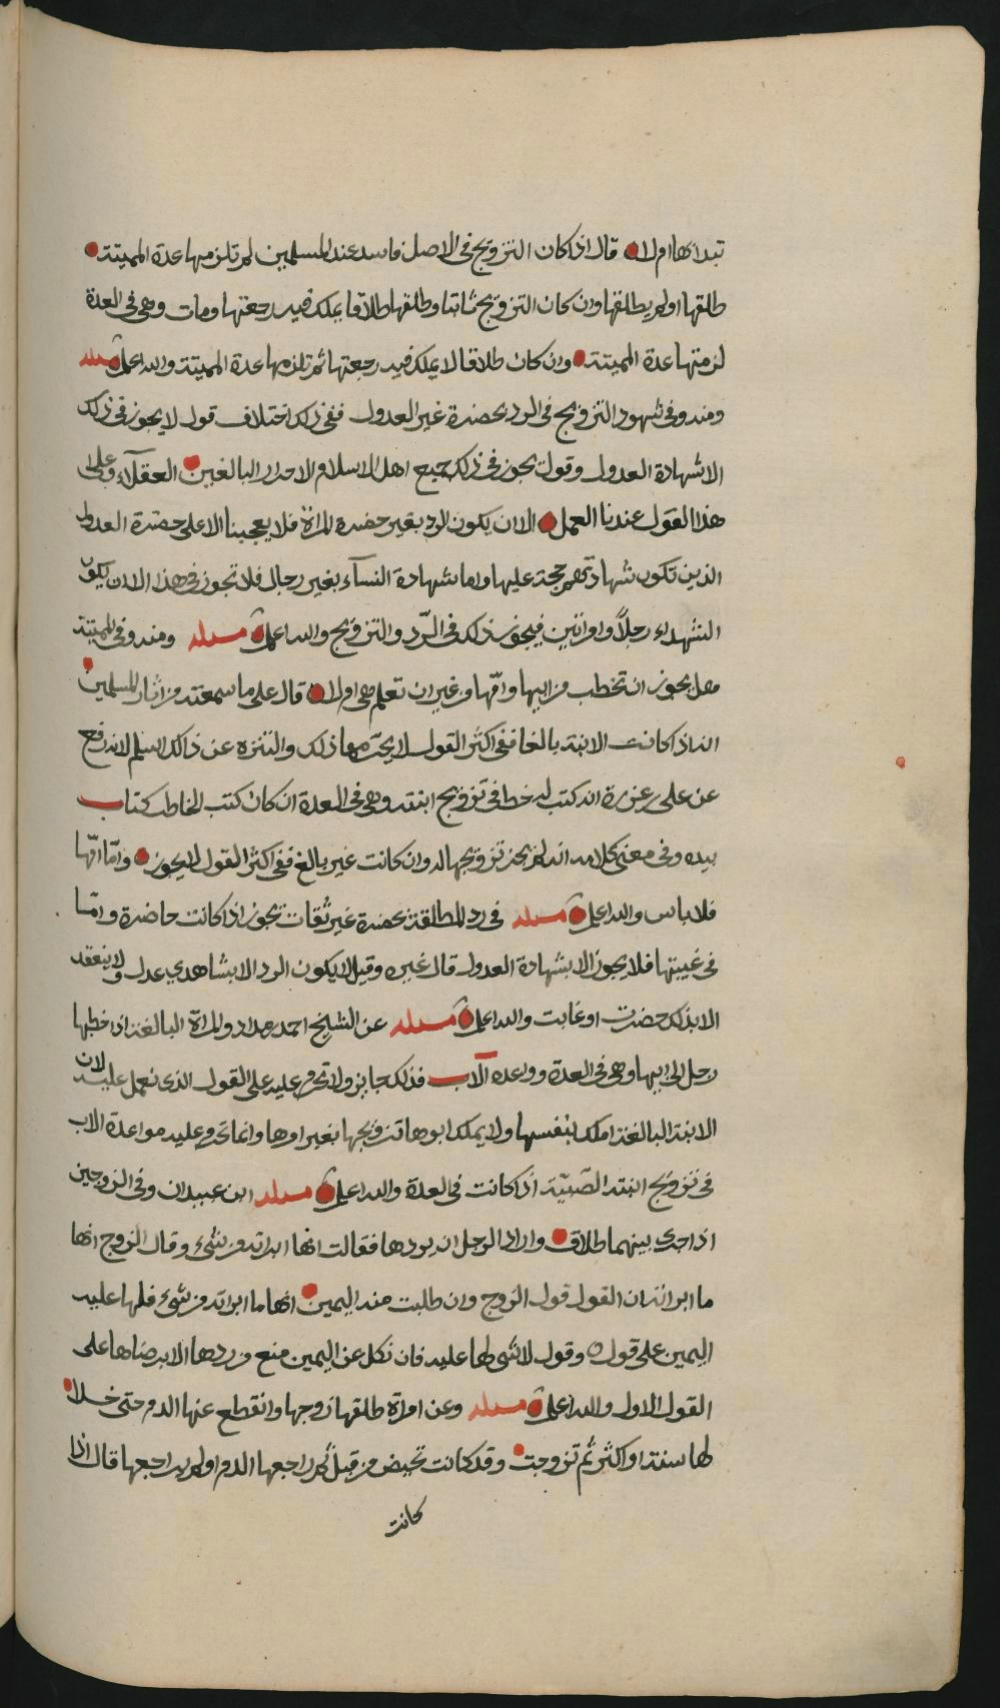 تبدأها ام لا قال اذا كان التزويج في الاصل فاسد عند المسلمين لم تلزمها عدة المميتة
طلقها او لم يطلقها وان كان التزويج ثابتا وطلقها طلاقا يملك فيه رجعتها ومات وهي في العدة
لزمتها عدة المميتة وان كان طلاقا لا يملك فيه رجعتها لم تلزمها عدة المميتة والله اعلم مسئله
ومنه وفي شهود التزويج في الرد بحضرة غير العدول ففي ذلك اختلاف قول لا يجوز في ذلك
الا شهادة العدول وقول يجوز في ذلك جميع اهل الاسلام الاحرار البالغين العقلآء وعلى
هذا القول عندنا العمل الا ان يكون الرد بغير حضرة المراة فلا يعجبنا الا على حضرة العدول
الذين تكون شهادتهم حجة عليها واما شهادة النسآء بغير رجال فلا تجوز في هذا الا ان يكون
الشهداء رجلاً وامراتين فيجوز ذلك في الرّد والتزويج والله اعلم مسئله ومنه وفي المميتة
هل يجوز ان تخطب من ابيها وامّها من غير ان تعلم هي ام لا قال على ما سمعته من اثار المسلمين
انه اذا كانت الابنة بالغا ففي اكثر القول لا يحرمها ذلك والتنزه عن ذالك اسلم لانه رفع
عن علي بن عزرة انه كتب له خطا في تزويج ابنته وهي في العدة ان كان كتب الخاطب كتاب
بيده وفي معنى كلامه انه لم يجز تزويجها له وان كانت غير بالغ ففي اكثر القول لا يجوز وامّا امّها
فلا باس والله اعلم مسئله في رد المطلقة بحضرة غير ثقات تجوز اذا كانت حاضرة وامّا
في غيبتها فلا يجوز الا بشهادة العدول قال غيره وقيل لا يكون الرد الا بشاهدي عدل ولا ينعقد
الا بذلك حضرت او غابت والله اعلم مسئله عن الشيخ احمد بن مداد والمراة البالغة اذا خطبها
رجل الى ابيها وهي في العدة وواعده الآب فذلك جايز ولا تحرم عليه على القول الذي نعمل عليه لان
الابنة البالغة املك بنفسها ولا يملك ابوها تزويجها بغير امرها وانما تحرم عليه مواعدة الاب
في تزويج ابنته الصبيّة اذا كانت في العدة والله اعلم مسئله ابن عبيدان وفي الزوجين
اذا جرى بينهما طلاق واراد الرجل ان يردها فقالت انها ابراته من شيء وقال الزوج انها
ما ابراته ان القول قول الزوج وان طلبت منه اليمين انها ما ابراته من شيء فلها عليه
اليمين على قول وقول لا شي لها عليه فان نكل عن اليمين منع من ردها الا برضاها على
القول الاول والله اعلم مسئله وعن امراة طلقها زوجها وانقطع عنها الدم حتى خلا
لها سنة او اكثر ثم تزوجت وقد كانت تحيض من قبل ثم راجعها الدم او لم يراجعها قال اذا
كانت